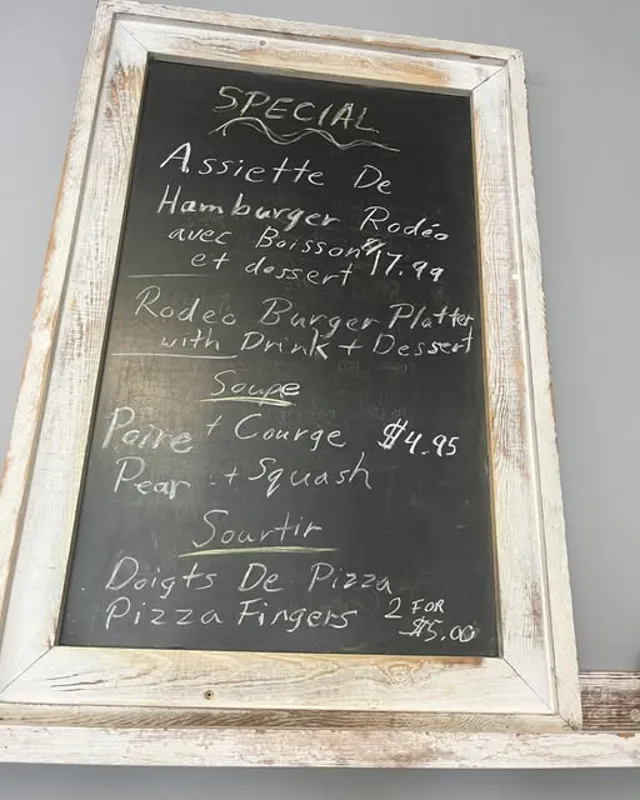 SPECIAL
Assiette De
Hamburger Rodéo
avec Boisson
et dessert $17.99
Rodeo Burger Platter
with Drink + Dessert
Soupe
Poire + Courge $4.95
Pear + Squash
Sourtir
Doigts De Pizza
Pizza Fingers 2 FOR
$5.00